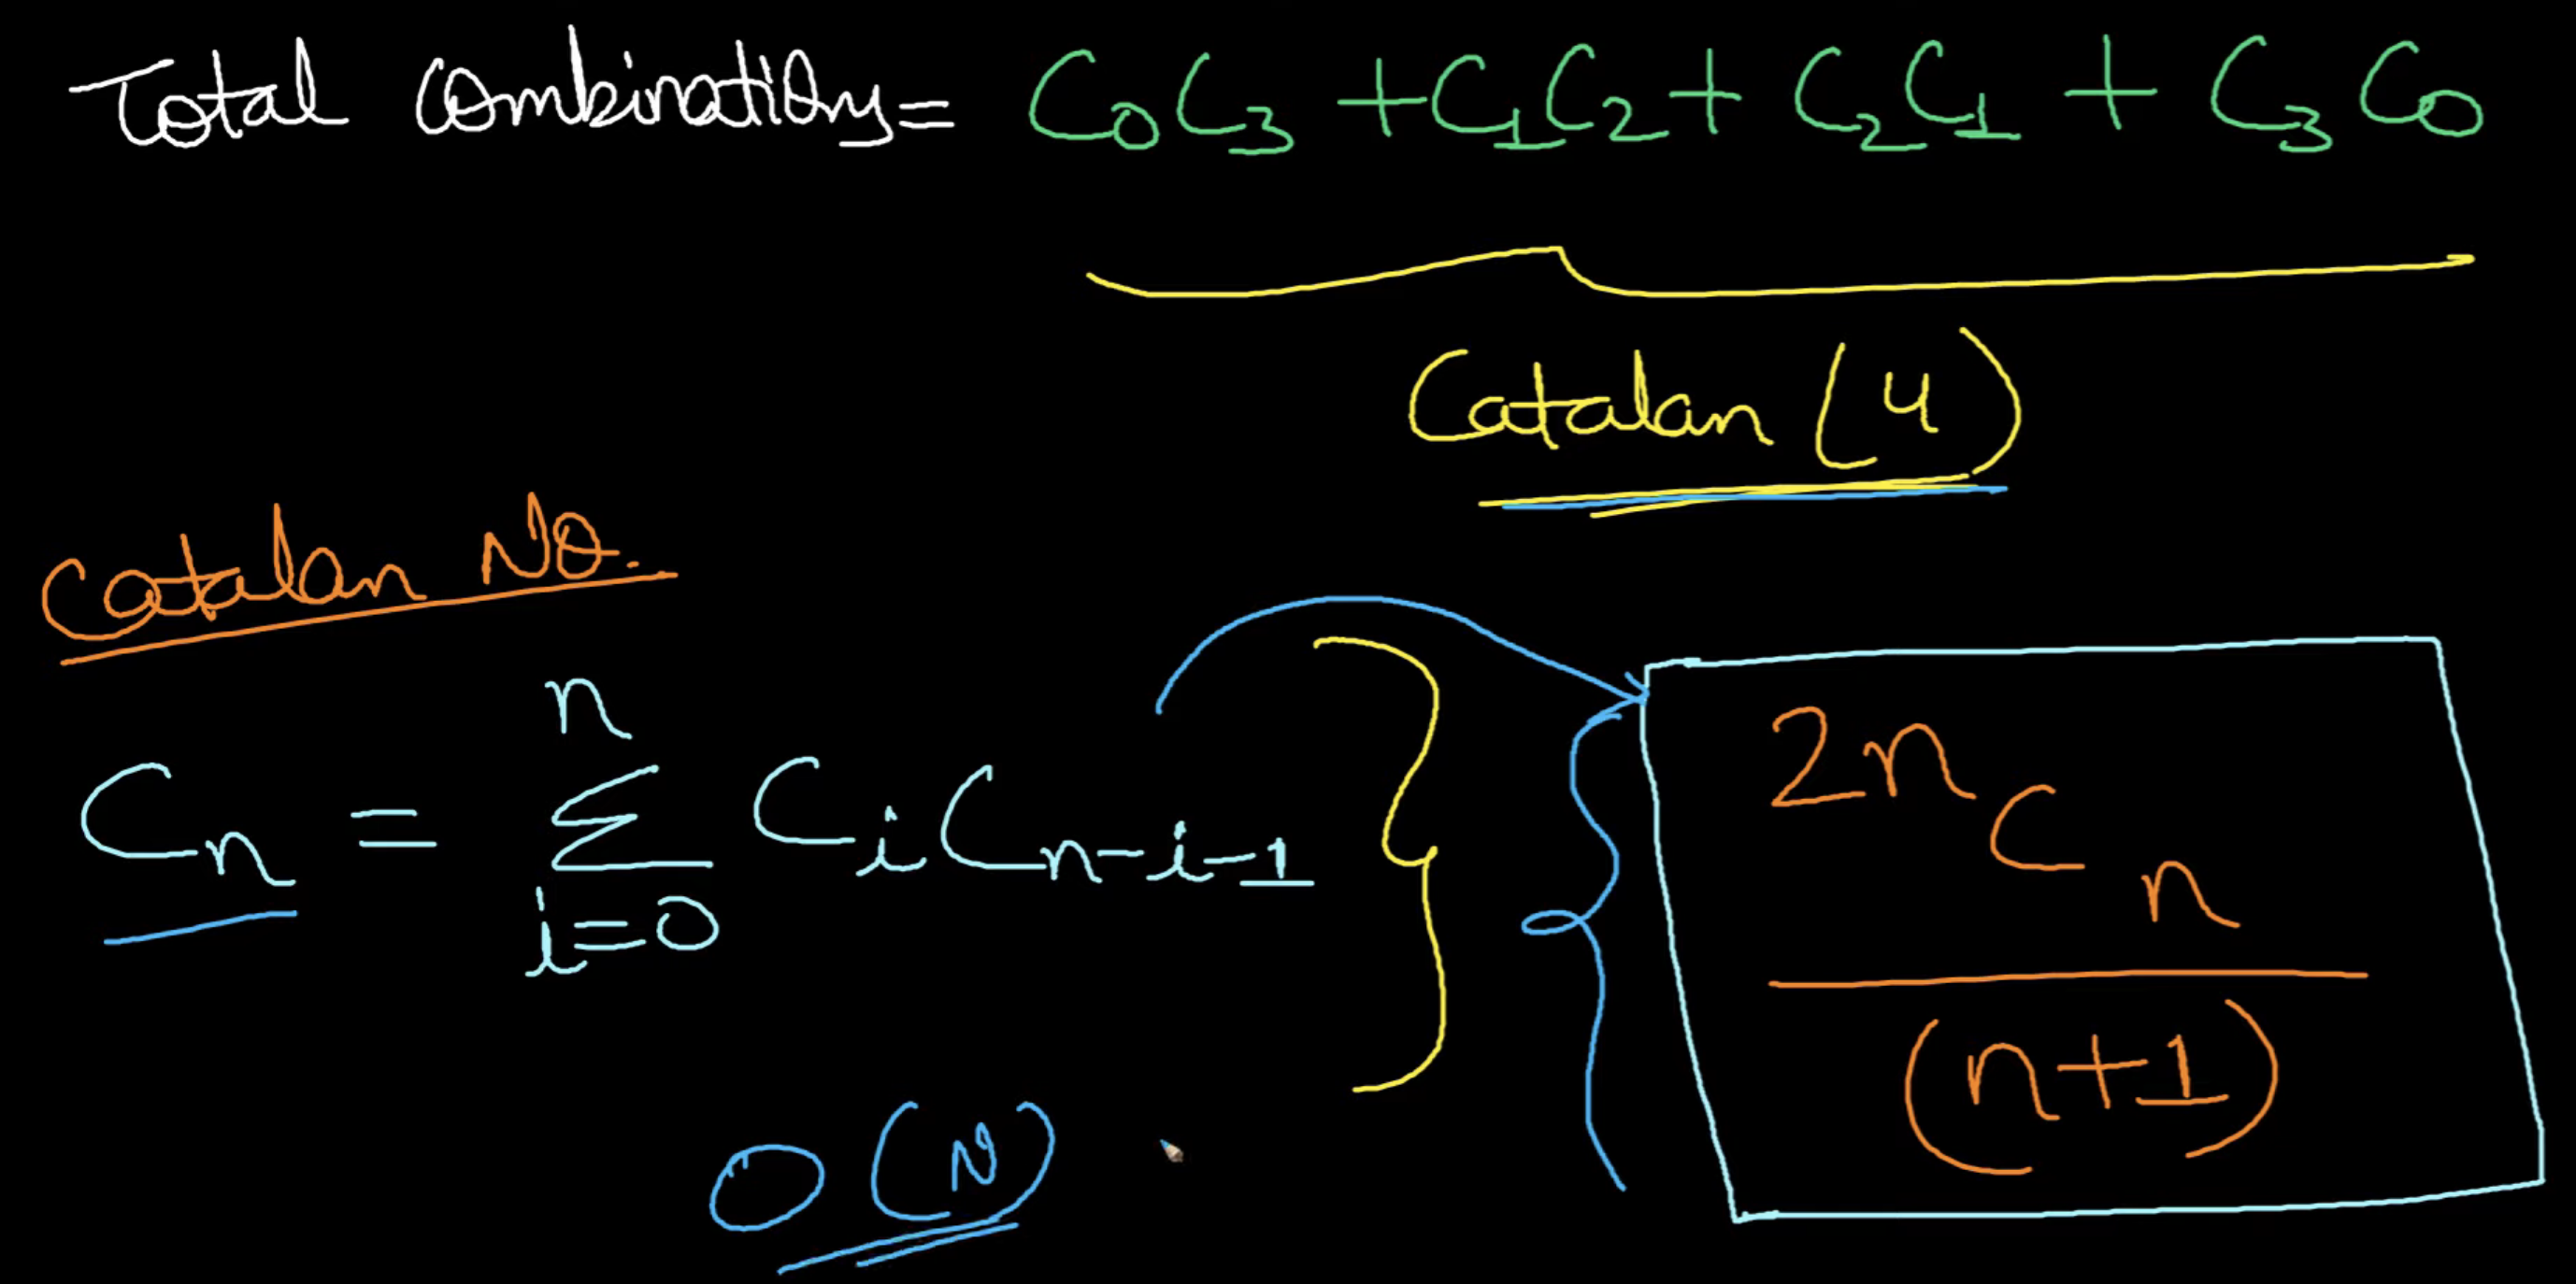 Total Combinations = C₀C₃ + C₁C₂ + C₂C₁ + C₃C₀
Catalan (4)
Catalan No.
n
Cₙ = Σ CᵢCₙ₋ᵢ₋₁
i=0
2n C n
(n+1)
O(N)